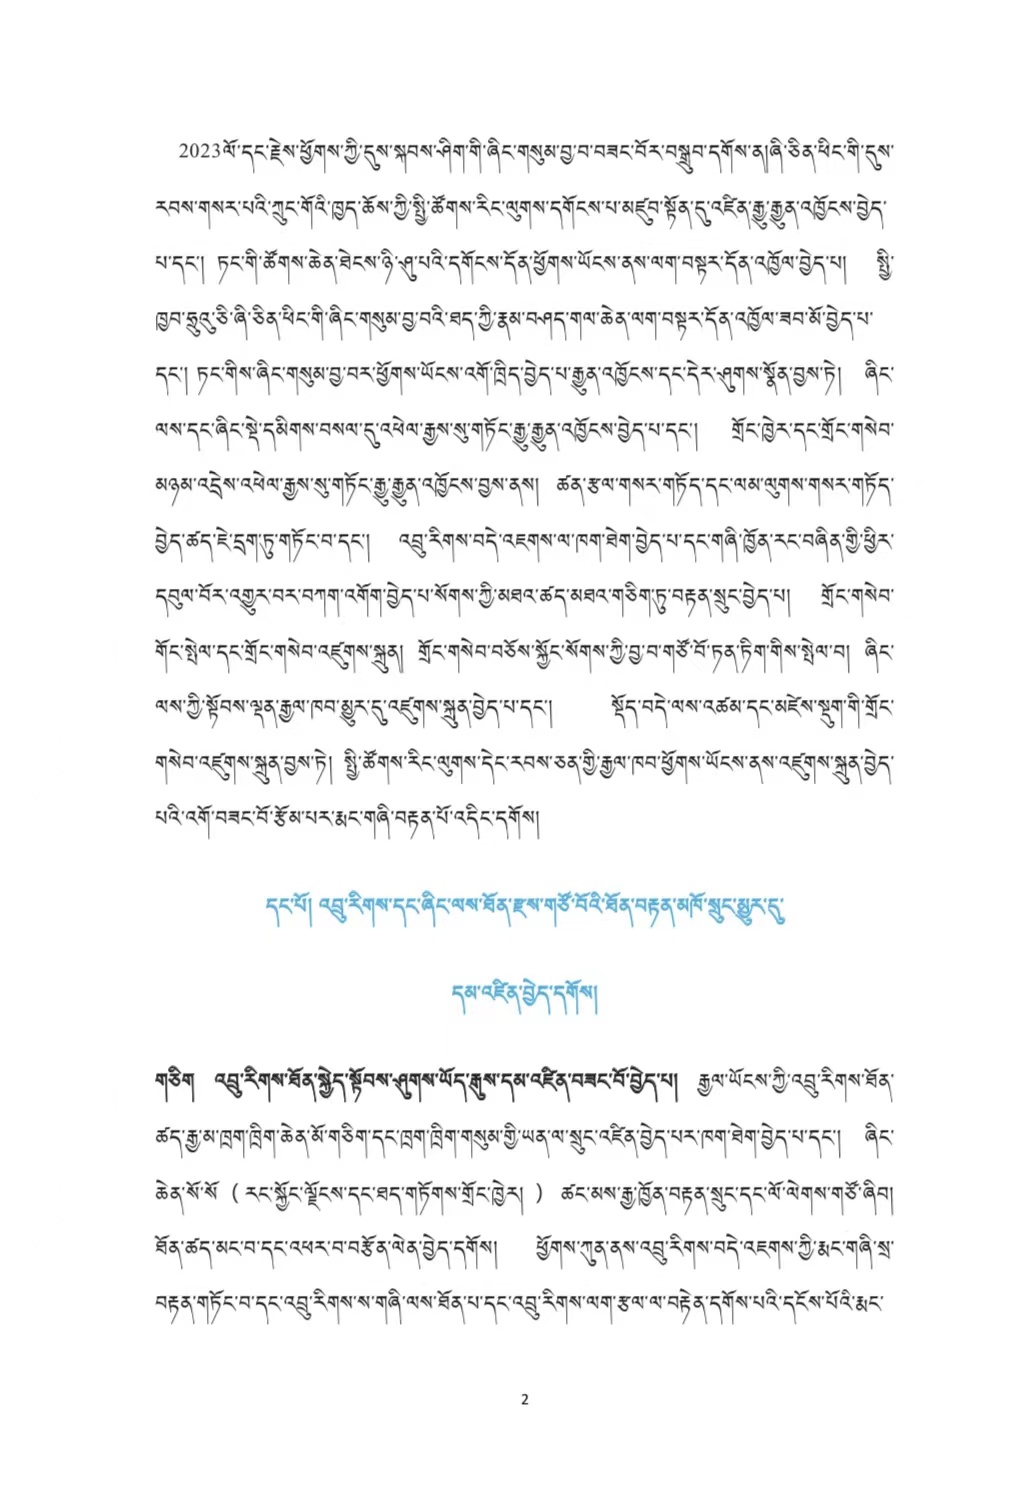 2023ལོ་དང་རྗེས་ཕྱོགས་ཀྱི་དུས་སྐབས་ཤིག་གི་ཞིང་གསུམ་བྱ་བ་བཟང་བོར་བསྒྲུབ་དགོས་ན།ཞི་ཅིན་ཕིང་གི་དུས་
རབས་གསར་པའི་ཀྲུང་གོའི་ཁྱད་ཆོས་ཀྱི་སྤྱི་ཚོགས་རིང་ལུགས་དགོངས་པ་མཛུབ་སྟོན་དུ་འཛིན་རྒྱུ་རྒྱུན་འཁྱོངས་བྱེད་
པ་དང་། ཏང་གི་ཚོགས་ཆེན་ཐེངས་ཉི་ཤུ་པའི་དགོངས་དོན་ཕྱོགས་ཡོངས་ནས་ལག་བསྟར་དོན་འཁྱོལ་བྱེད་པ། སྤྱི་
ཁྱབ་ཧྲུའུ་ཅི་ཞི་ཅིན་ཕིང་གི་ཞིང་གསུམ་བྱ་བའི་ཐད་ཀྱི་རྣམ་བཤད་གལ་ཆེན་ལག་བསྟར་དོན་འཁྱོལ་ཟབ་མོ་བྱེད་པ་
དང་། ཏང་གིས་ཞིང་གསུམ་བྱ་བར་ཕྱོགས་ཡོངས་འགོ་ཁྲིད་བྱེད་པ་རྒྱུན་འཁྱོངས་དང་དེར་ཤུགས་སྣོན་བྱས་ཏེ། ཞིང་
ལས་དང་ཞིང་སྡེ་དམིགས་བསལ་དུ་འཕེལ་རྒྱས་སུ་གཏོང་རྒྱུ་རྒྱུན་འཁྱོངས་བྱེད་པ་དང་། གྲོང་ཁྱེར་དང་གྲོང་གསེབ་
མཉམ་འདྲེས་འཕེལ་རྒྱས་སུ་གཏོང་རྒྱུ་རྒྱུན་འཁྱོངས་བྱས་ནས། ཚན་རྩལ་གསར་གཏོད་དང་ལམ་ལུགས་གསར་གཏོད་
བྱེད་ཚད་ཇེ་དྲག་ཏུ་གཏོང་བ་དང་། འབྲུ་རིགས་བདེ་འཇགས་ལ་ཁག་ཐེག་བྱེད་པ་དང་གཞི་ཁྱོན་རང་བཞིན་གྱི་ཕྱིར་
དབུལ་བོར་འགྱུར་བར་བཀག་འགོག་བྱེད་པ་སོགས་ཀྱི་མཐའ་ཚད་མཐའ་གཅིག་ཏུ་བརྟན་སྲུང་བྱེད་པ། གྲོང་གསེབ་
གོང་སྤེལ་དང་གྲོང་གསེབ་འཛུགས་སྐྲུན། གྲོང་གསེབ་བཅོས་སྐྱོང་སོགས་ཀྱི་བྱ་བ་གཙོ་བོ་ཏན་ཏིག་གིས་སྤེལ་བ། ཞིང་
ལས་ཀྱི་སྟོབས་ལྡན་རྒྱལ་ཁབ་མྱུར་དུ་འཛུགས་སྐྲུན་བྱེད་པ་དང་། སྡོད་བདེ་ལས་འཚམ་དང་མཛེས་སྡུག་གི་གྲོང་
གསེབ་འཛུགས་སྐྲུན་བྱས་ཏེ། སྤྱི་ཚོགས་རིང་ལུགས་དེང་རབས་ཅན་གྱི་རྒྱལ་ཁབ་ཕྱོགས་ཡོངས་ནས་འཛུགས་སྐྲུན་བྱེད་
པའི་འགོ་བཟང་བོ་རྩོམ་པར་རྨང་གཞི་བརྟན་པོ་འདིང་དགོས།
དང་པོ། འབྲུ་རིགས་དང་ཞིང་ལས་ཐོན་རྫས་གཙོ་བོའི་ཐོན་བརྟན་མཁོ་སྲུང་མྱུར་དུ་
དམ་འཛིན་བྱེད་དགོས།
གཅིག འབྲུ་རིགས་ཐོན་སྐྱེད་སྟོབས་ཤུགས་ཡོད་རྒུས་དམ་འཛིན་བཟང་བོ་བྱེད་པ། རྒྱལ་ཡོངས་ཀྱི་འབྲུ་རིགས་ཐོན་
ཚད་རྒྱ་མ་ཁྲག་ཁྲིག་ཆེན་མོ་གཅིག་དང་ཁྲག་ཁྲིག་གསུམ་གྱི་ཡན་ལ་སྲུང་འཛིན་བྱེད་པར་ཁག་ཐེག་བྱེད་པ་དང་། ཞིང་
ཆེན་སོ་སོ ( རང་སྐྱོང་ལྗོངས་དང་ཐད་གཏོགས་གྲོང་ཁྱེར། ) ཚང་མས་རྒྱ་ཁྱོན་བརྟན་སྲུང་དང་ལོ་ལེགས་གཙོ་ཞིབ།
ཐོན་ཚད་མང་བ་དང་འཕར་བ་བརྩོན་ལེན་བྱེད་དགོས། ཕྱོགས་ཀུན་ནས་འབྲུ་རིགས་བདེ་འཇགས་ཀྱི་རྨང་གཞི་སྲ་
བརྟན་གཏོང་བ་དང་འབྲུ་རིགས་ས་གཞི་ལས་ཐོན་པ་དང་འབྲུ་རིགས་ལག་རྩལ་ལ་བརྟེན་དགོས་པའི་དངོས་པོའི་རྨང་
2